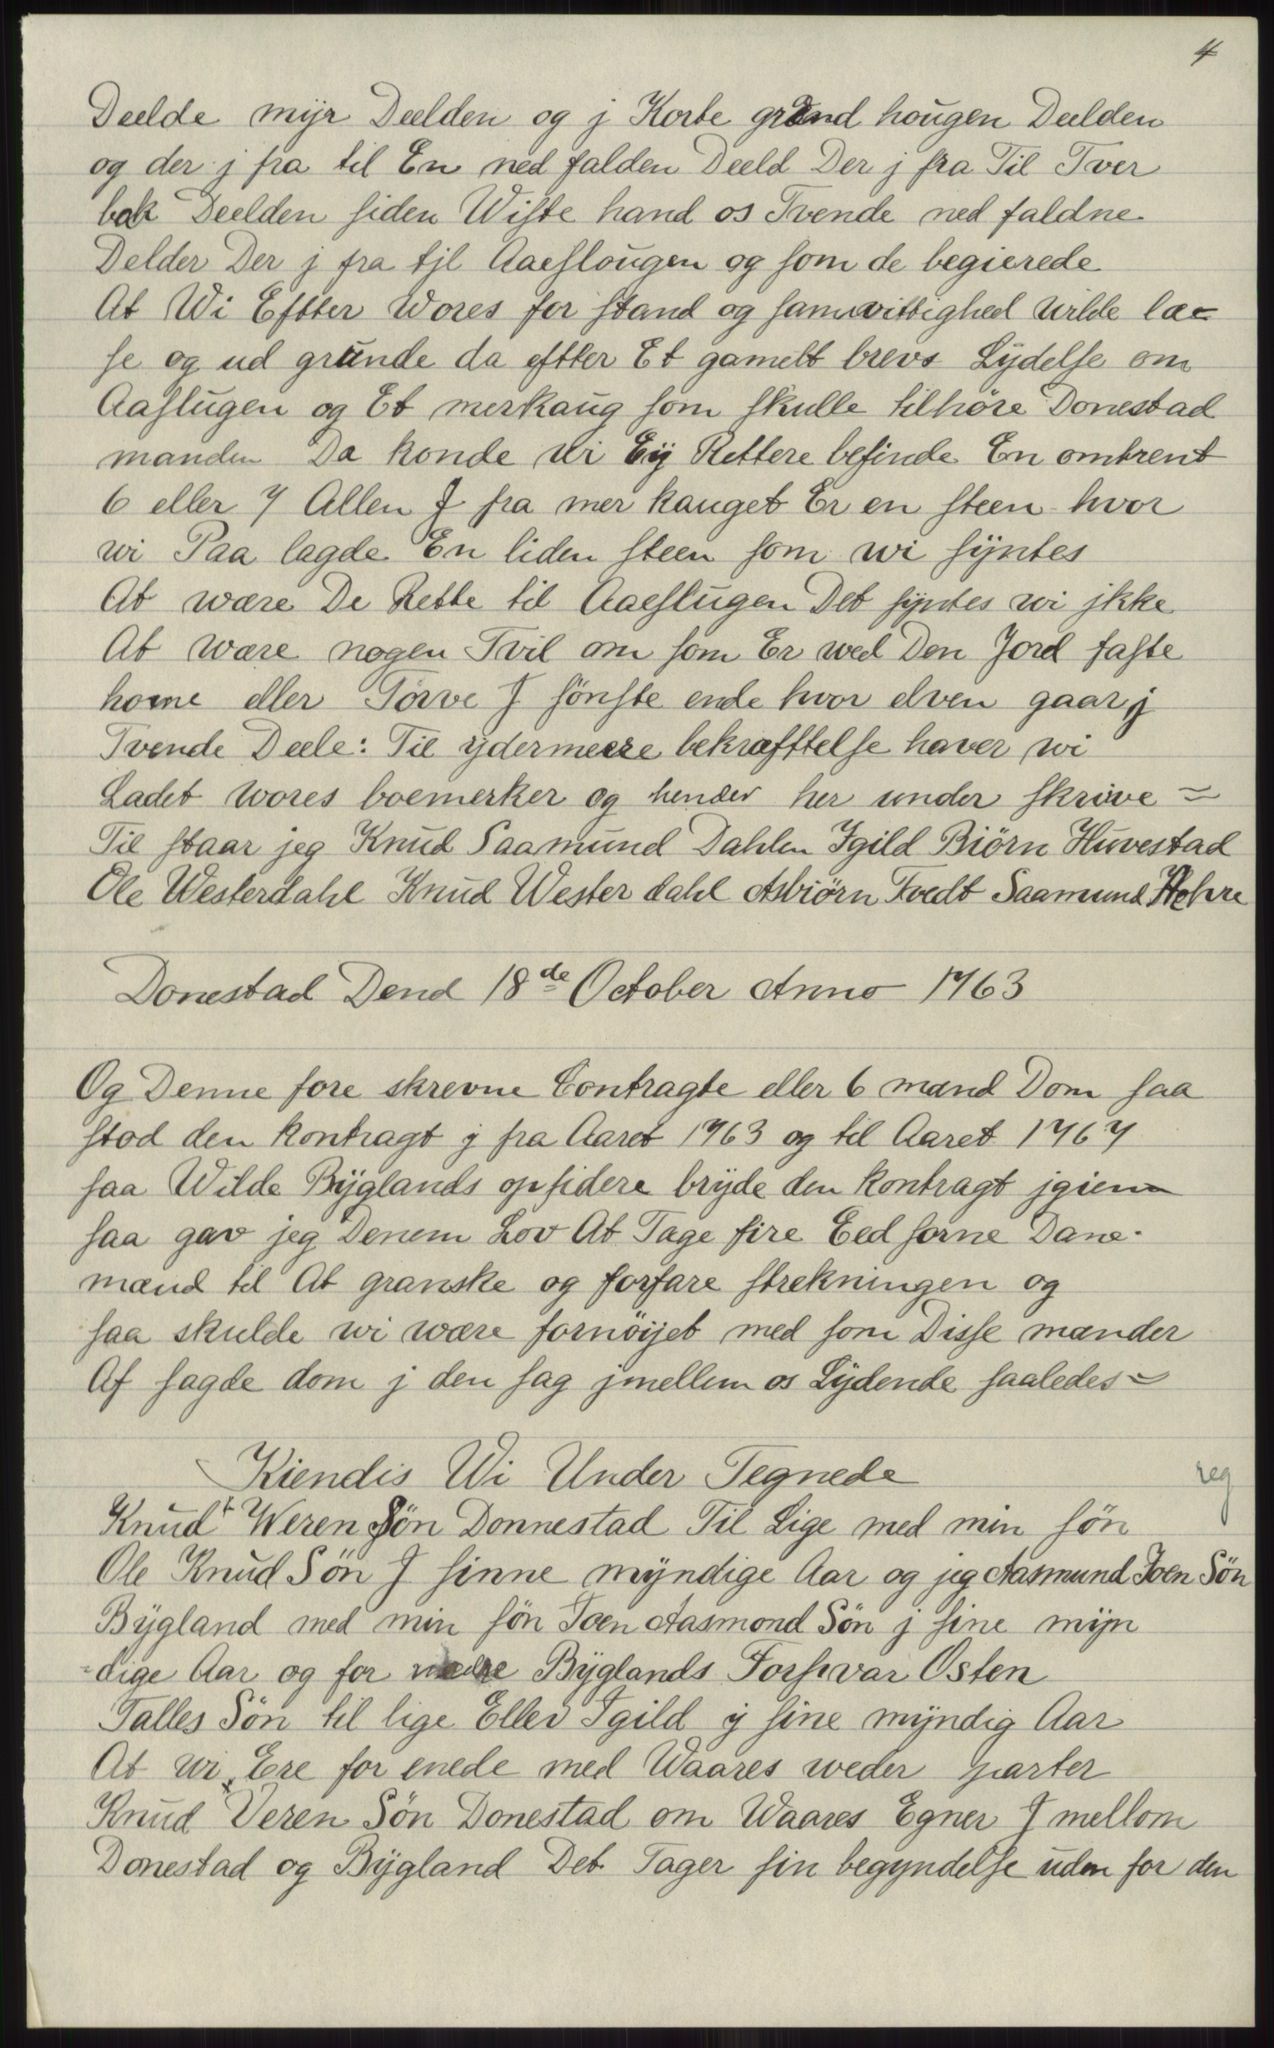 4
Deelde mijr Deelden og j Korte grand hougen Deelden
og der j fra til En ned falden Deeld Der j fra Til Tver
bak Deelden siden Wiste hand os Tvende ned faldne
Delder Der j fra tjl Aaeslougen og som de begierede
At Wi Eftter Wores for stand og samvittighed wilde læ=
se og ud grunde da eftter Et gamelt brevs Lydelse om
Aaslugen og Et merkaug som skulle tilhøre Donestad
manden Da konde wi Eij Rettere befinde En omtrent
6 eller 7 Allen J fra mer kauget Er en steen hvor
wi Paa lagde En liden steen som wi sijntes
At wære De Rette til Aaeslugen Det sijntes wi jkke
At wære nogen Tvil om som Er wed Den Jord faste
home eller Torve J sönste ende hvor elven gaar j
Tvende Deele: Til ydermeere bekræfttelse haver wi
Ladet wores boemerker og hender her under skrive =
Til staar jeg Knud Saamund Dahlen Igild Biörn Huvestad
Ole Westerdahl Knud Wester dahl Asbiörn Tvedt Saamund Hehre
Donestad Dend 18de October Anno 1763
Og Denne fore skrevne Contragte eller 6 mænd Dom saa
stod den kontragt j fra Aaret 1763 og til Aaret 1767
saa Wilde Bijglands opsidere brijde den kontragt jgien
saa gav jeg Denem Lov At Tage fire Eed sorne Dane-
mænd til At granske og forfare strekningen og
saa skulde wi wære fornöijet med som Disse mænder
Af sagde dom j den sag jmellem os Lijdende saaledes =
Kiendis Wi Under Tegnede
reg
Knud Weren Sön Donnestad Til Lige med min sön
Ole Knud Sön J sinne mijndige Aar og jeg Aasmund Joen Sön
Bijgland med min sön Joen Aasmond Sön j sine mijn
=dige Aar og for Bijglands Forsvar Osten
Talles Sön til lige Ellev Igild ij sine mijndig Aar
At wi Ere for enede med Waares weder parter
Knud Veren Sön Donestad om Waares Egner J mellom
Donestad og Bijgland Det Tager sin begyndelse uden for den